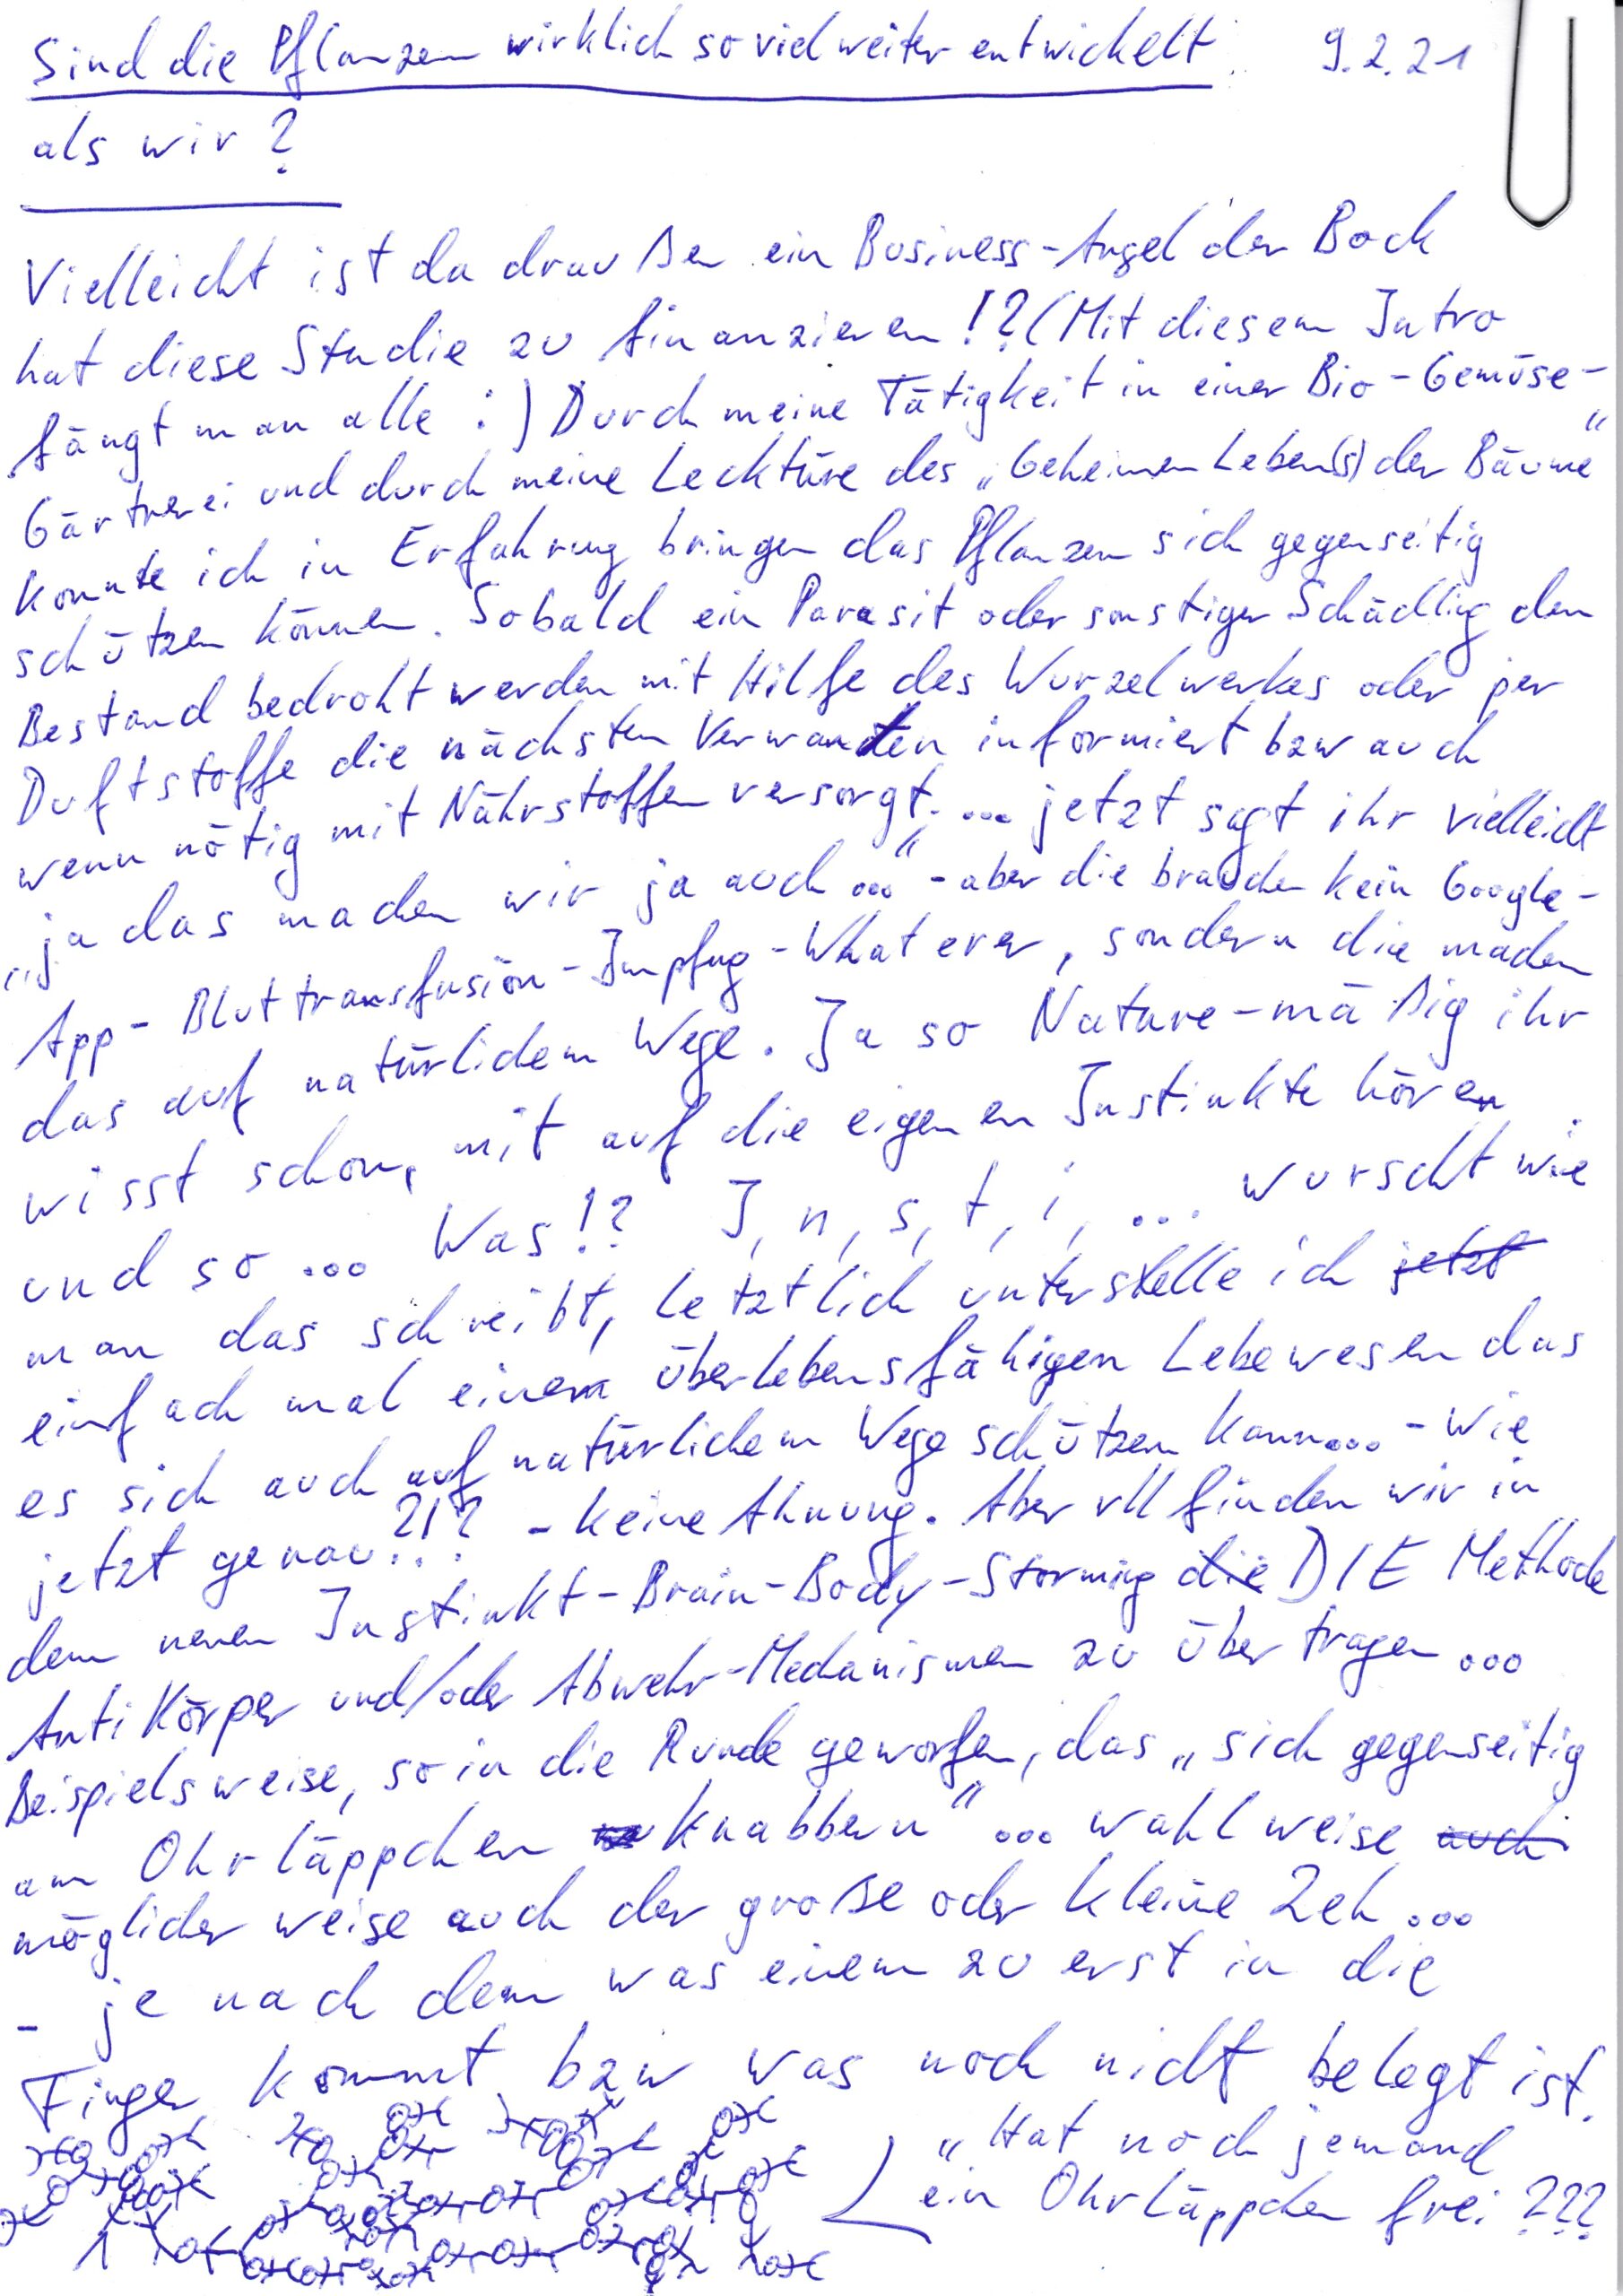 Sind die Pflanzen wirklich so viel weiter entwickelt 9.2.21
als wir?
Vielleicht ist da draußen ein Business-Angel der Bock
hat diese Studie zu finanzieren!? (Mit diesem Intro
fängt man alle :) Durch meine Tätigkeit in einer Bio-Gemüse-
Gärtnerei und durch meine Lecktüre des „Geheimen Leben(s) der Bäume"
konnte ich in Erfahrung bringen das Pflanzen sich gegenseitig
schützen können. Sobald ein Parasit oder sonstiger Schädlig den
Bestand bedroht werden mit Hilfe des Wurzelwerkes oder per
Duftstoffe die nächsten Verwanten informiert bzw auch
wenn nötig mit Nährstoffen versorgt. ... jetzt sagt ihr vielleicht
„ja das machen wir ja auch ..." - aber die brauchen kein Google-
App-Bluttransfusion-Impfug-What ever, sondern die machen
das auf natürlichem Wege. Ja so Nature-mäßig ihr
wisst schon, mit auf die eigenen Instinkte hören
und so ... Was!? I, n, s, t, i, ... wurscht wie
man das schreibt, letztlich unterstelle ich jetzt
einfach mal einem überlebensfähigen Lebewesen das
es sich auch auf natürlichem Wege schützen kann... - Wie
jetzt genau?!? - keine Ahnung. Aber vll finden wir in
dem neuen Instinkt-Brain-Body-Storming die DIE Methode
Antikörper und/oder Abwehr-Mechanismen zu übertragen ...
Beispielsweise, so in die Runde geworfen, das „sich gegenseitig
am Ohrläppchen knabbern" ... wahlweise auch
möglicher weise auch der große oder kleine Zeh ...
- je nach dem was einem zu erst in die
Finger kommt bzw was noch nicht belegt ist.
„Hat noch jemand
ein Ohrläppchen frei ???